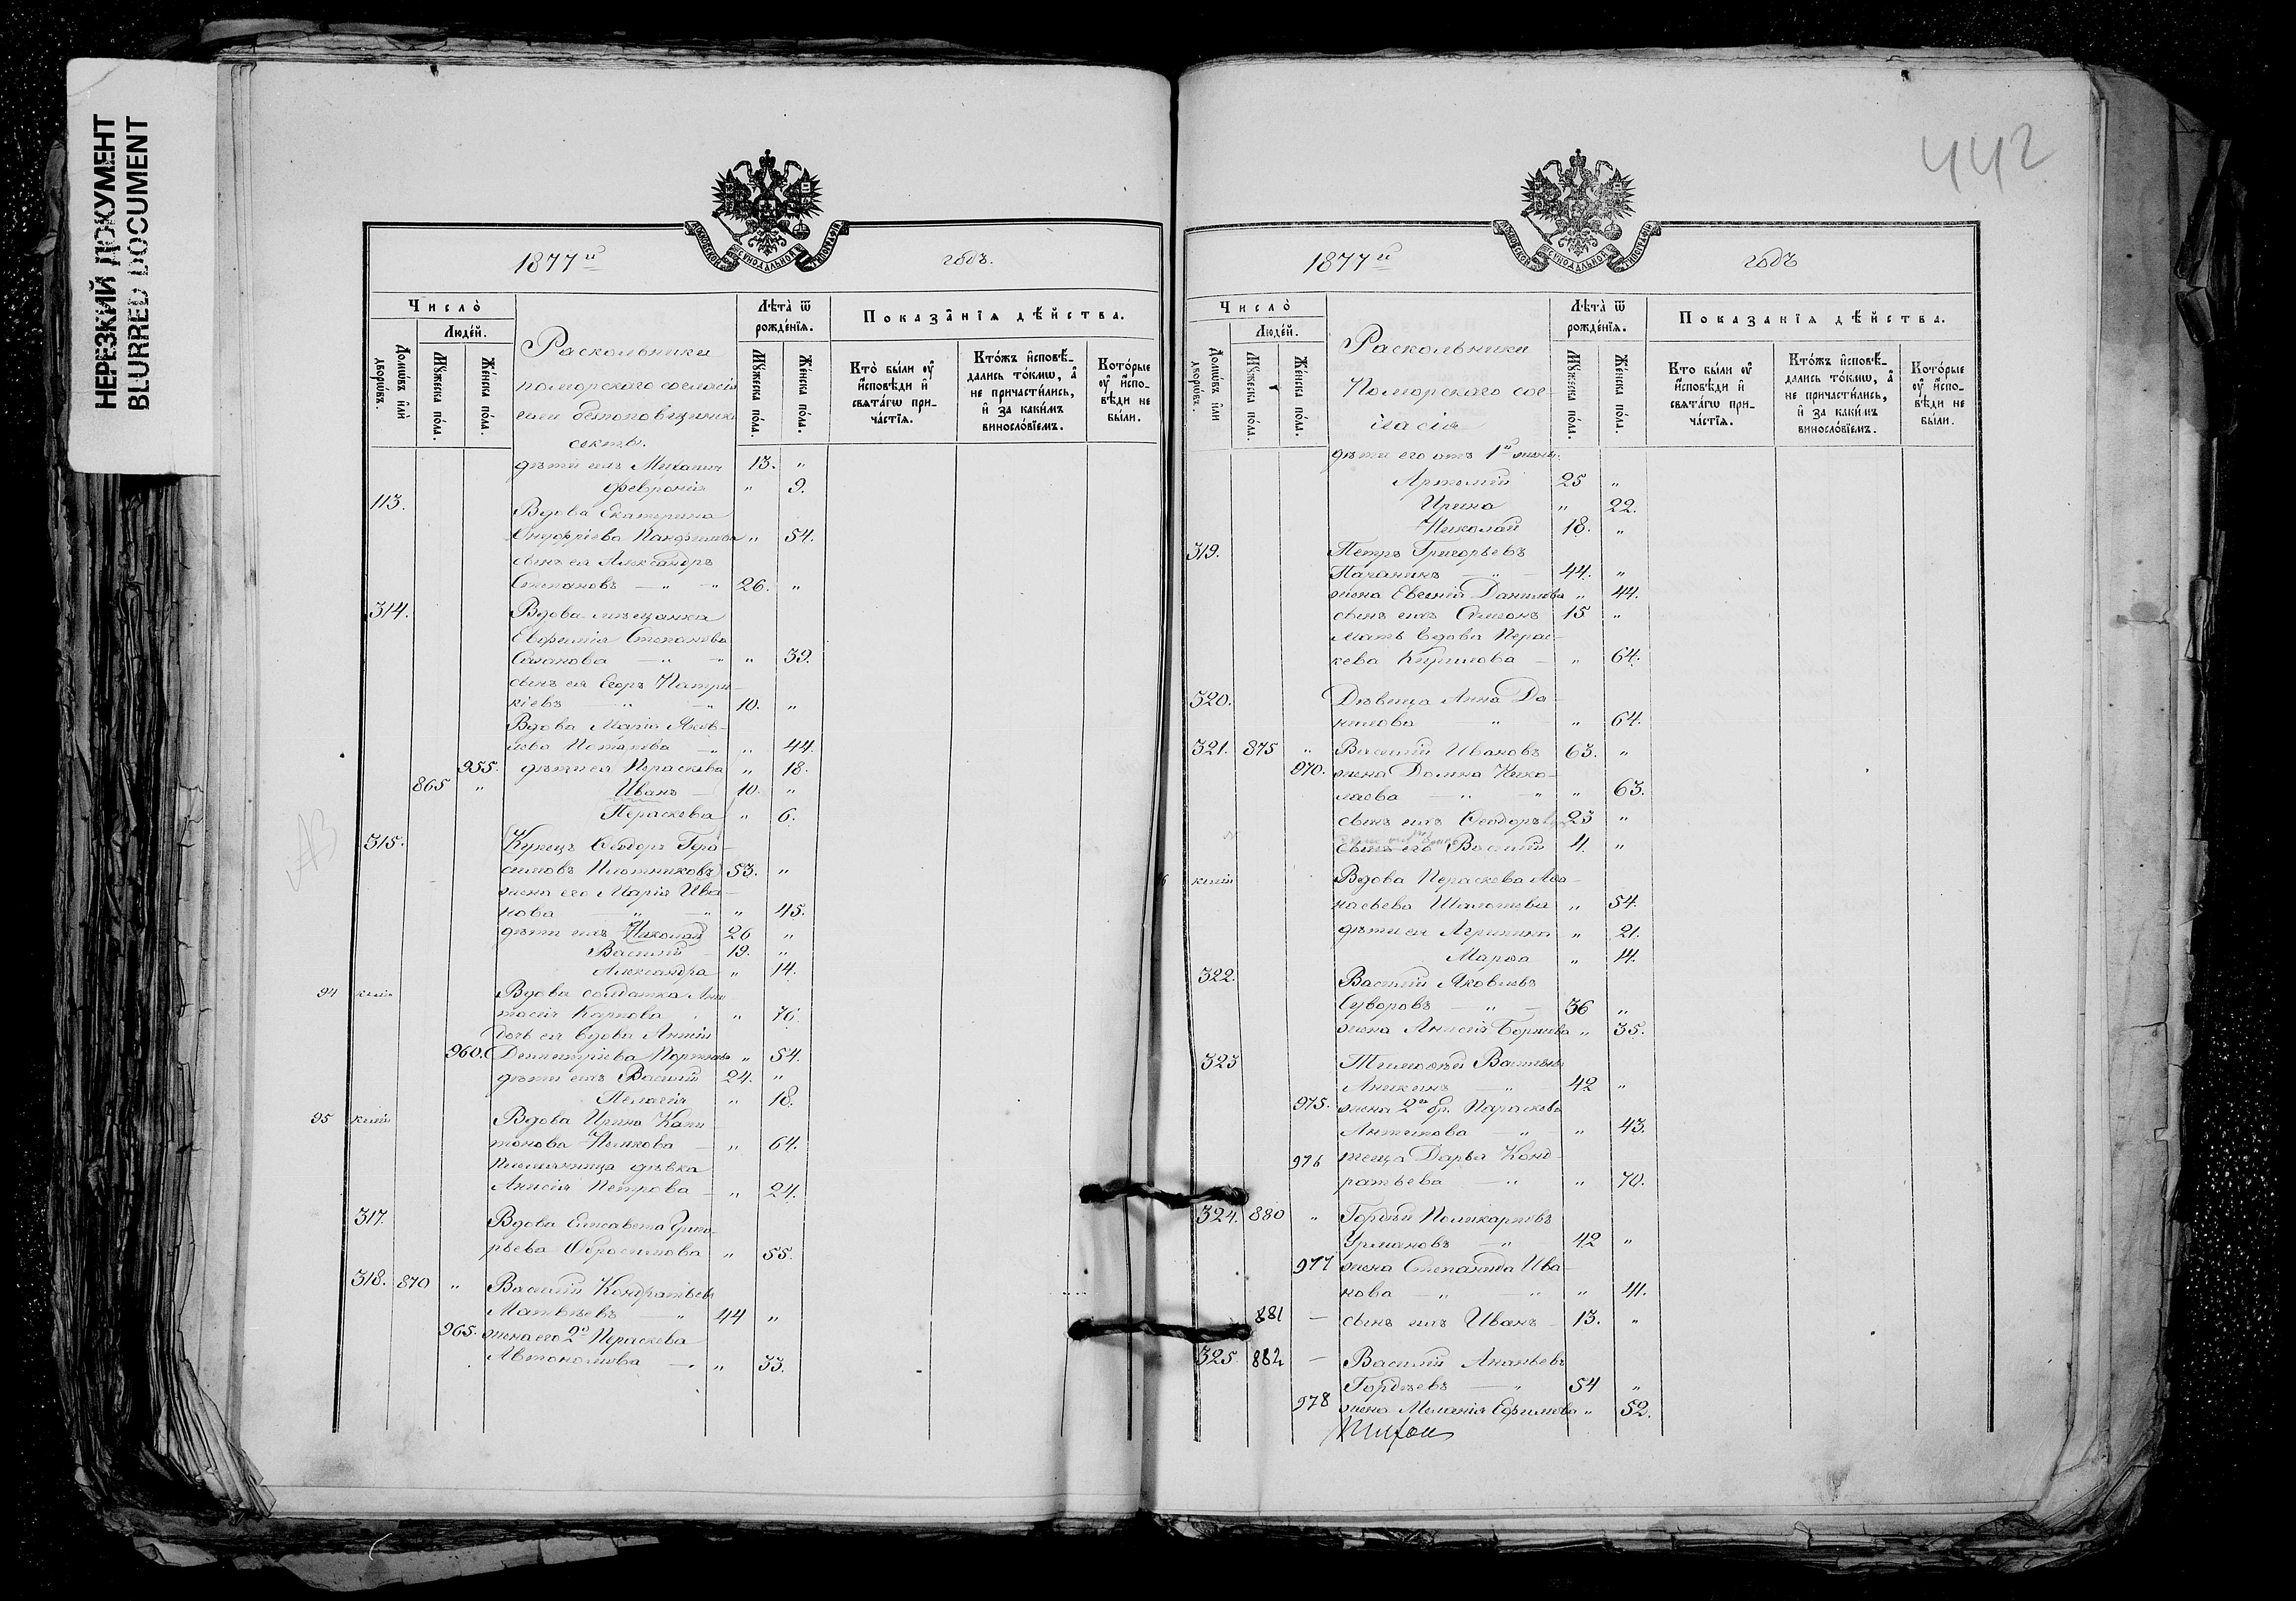 НЕРЕЗКИЙ ДОКУМЕНТ
BLURRED DOCUMENT
1877й годъ.
Число̀
Людей.
Домѡвъ или дворѡвъ.
Мꙋжеска пола.
Женска пола.
Раскольники
поморскаго согласія
или безпоповщинской
секты.
Лѣта̀ ѿ рожденїѧ.
Мꙋжеска пола.
Женска пола.
Показанїѧ дѣйства.
Кто̀ были оу҆ исповѣди и свѧтагѡ причастїѧ.
Ктожъ исповѣдались токмѡ, а не причастились, и за какимъ винословїемъ.
Которые оу҆ исповѣди не были.
дѣти ихъ Михаилъ 13. "
Феврония " 9.
113. Вдова Екатерина
Онуфріева Панфилова " 54.
сынъ ея Александръ
Степановъ — " — " 26. "
314. Вдова мѣщанка
Евфимія Степанова
" 39.
сынъ ея Егоръ Патри-
кіевъ " — " 10. "
Вдова Марія Яков-
лева Потапова — " " 44.
955. дѣти ея Параскева " 18.
865 " Иванъ — 10. "
Параскева " 6.
315. Купецъ Ѳеодоръ Гера-
симовъ Плотниковъ 53. "
жена его Марія Ива-
нова — " — " " 45.
дѣти ихъ Николай 26 "
Василій — 19. "
Александра " 14.
94 келія Вдова солдатка Ана-
тасія Карпова " 76.
дочь ея вдова
960. Димитріева " 54.
дѣти ихъ Василій 24. "
Пелагія " 18.
95 келія Вдова Ирина Капи-
тонова — " 64.
Племянница дѣвка
Анисія Петрова — " 24.
317. Вдова Елисавета Григо-
рьева Абросимова " 55.
318. 870 " Василій Кондратьевъ
Матвѣевъ — " 44 "
965. жена его 2я Параскева
Автономова — " " 33.
442
1877й годъ
Число̀
Людей.
Домѡвъ или дворѡвъ.
Мꙋжеска пола.
Женска пола.
Раскольники
Поморскаго сог-
ласія
Лѣта̀ ѿ рожденїѧ.
Мꙋжеска пола.
Женска пола.
Показанїѧ дѣйства.
Кто были оу҆ исповѣди и свѧтагѡ причастїѧ.
Ктожъ исповѣдались токмѡ, а не причастились, и за какимъ винословїемъ.
Которые оу҆ исповѣди не были.
дѣти его отъ 1й жены.
Артемій 25 "
Ирина " 22.
Николай 18. "
319. Петръ Григорьевъ
— " — 44. "
жена Данилова " 44.
сынъ ихъ Симеонъ 15 "
Мать вдова Парас-
кева Кирилова — " 64.
320. Дѣвица Анна Да-
нилова " " 64.
321. 875 " Василій Ивановъ 63. "
970. жена Домна Нико-
лаева — " — " " 63.
сынъ ихъ Ѳеодоръ 23 "
сынъ его Василій 4. "
келія Вдова Параскева Аѳа-
насьева " 54.
дѣти ея Агрипина " 21.
Марѳа " 14.
322. Василій Яковлевъ
Суворовъ — " — 36 "
жена Анисія Борисова " 35.
323 Тимоѳей Васильевъ
Аникинъ — " — 42 "
975. жена 2го бр. Параскева
Антипова — " — " 43.
976 теща Дарья Конд-
ратьева — " " 70.
324. 880 " Гордѣй Поликарповъ
Урмановъ — " — 42 "
977 жена Степанида Ива-
нова — " — " " 41.
881 — сынъ ихъ Иванъ — 13. "
325. 882 — Василій Ананьевъ
Гордѣевъ — " 54 "
978 жена Меланія Ефимова " 52.